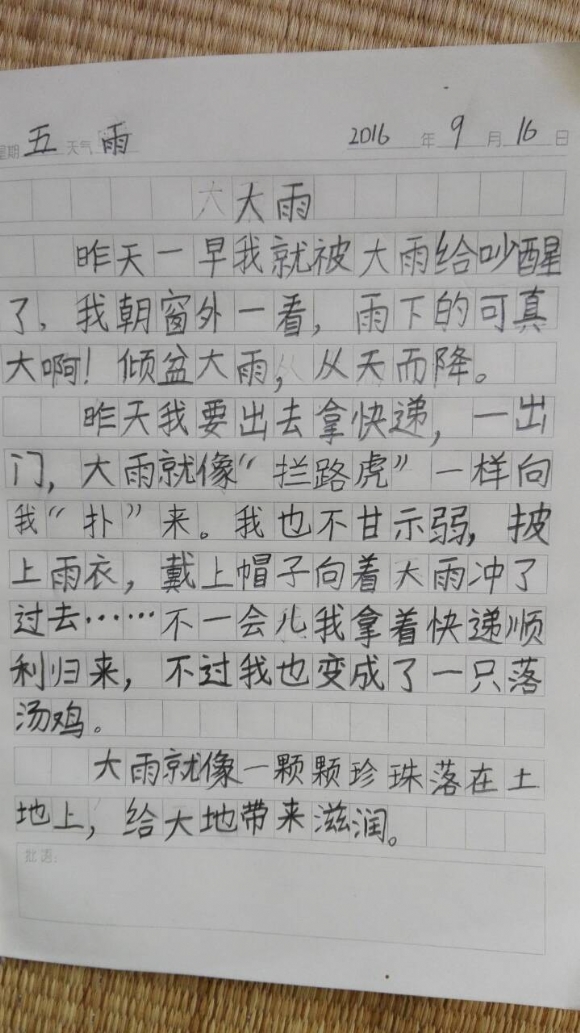 星期 五 天气 雨 2016 年 9 月 16 日
大雨
昨天一早我就被大雨给吵醒
了，我朝窗外一看，雨下的可真
大啊！倾盆大雨，从天而降。
昨天我要出去拿快递，一出
门，大雨就像“拦路虎”一样向
我“扑”来。我也不甘示弱，披
上雨衣，戴上帽子向着大雨冲了
过去……不一会儿我拿着快递顺
利归来，不过我也变成了一只落
汤鸡。
大雨就像一颗颗珍珠落在土
地上，给大地带来滋润。
批语：